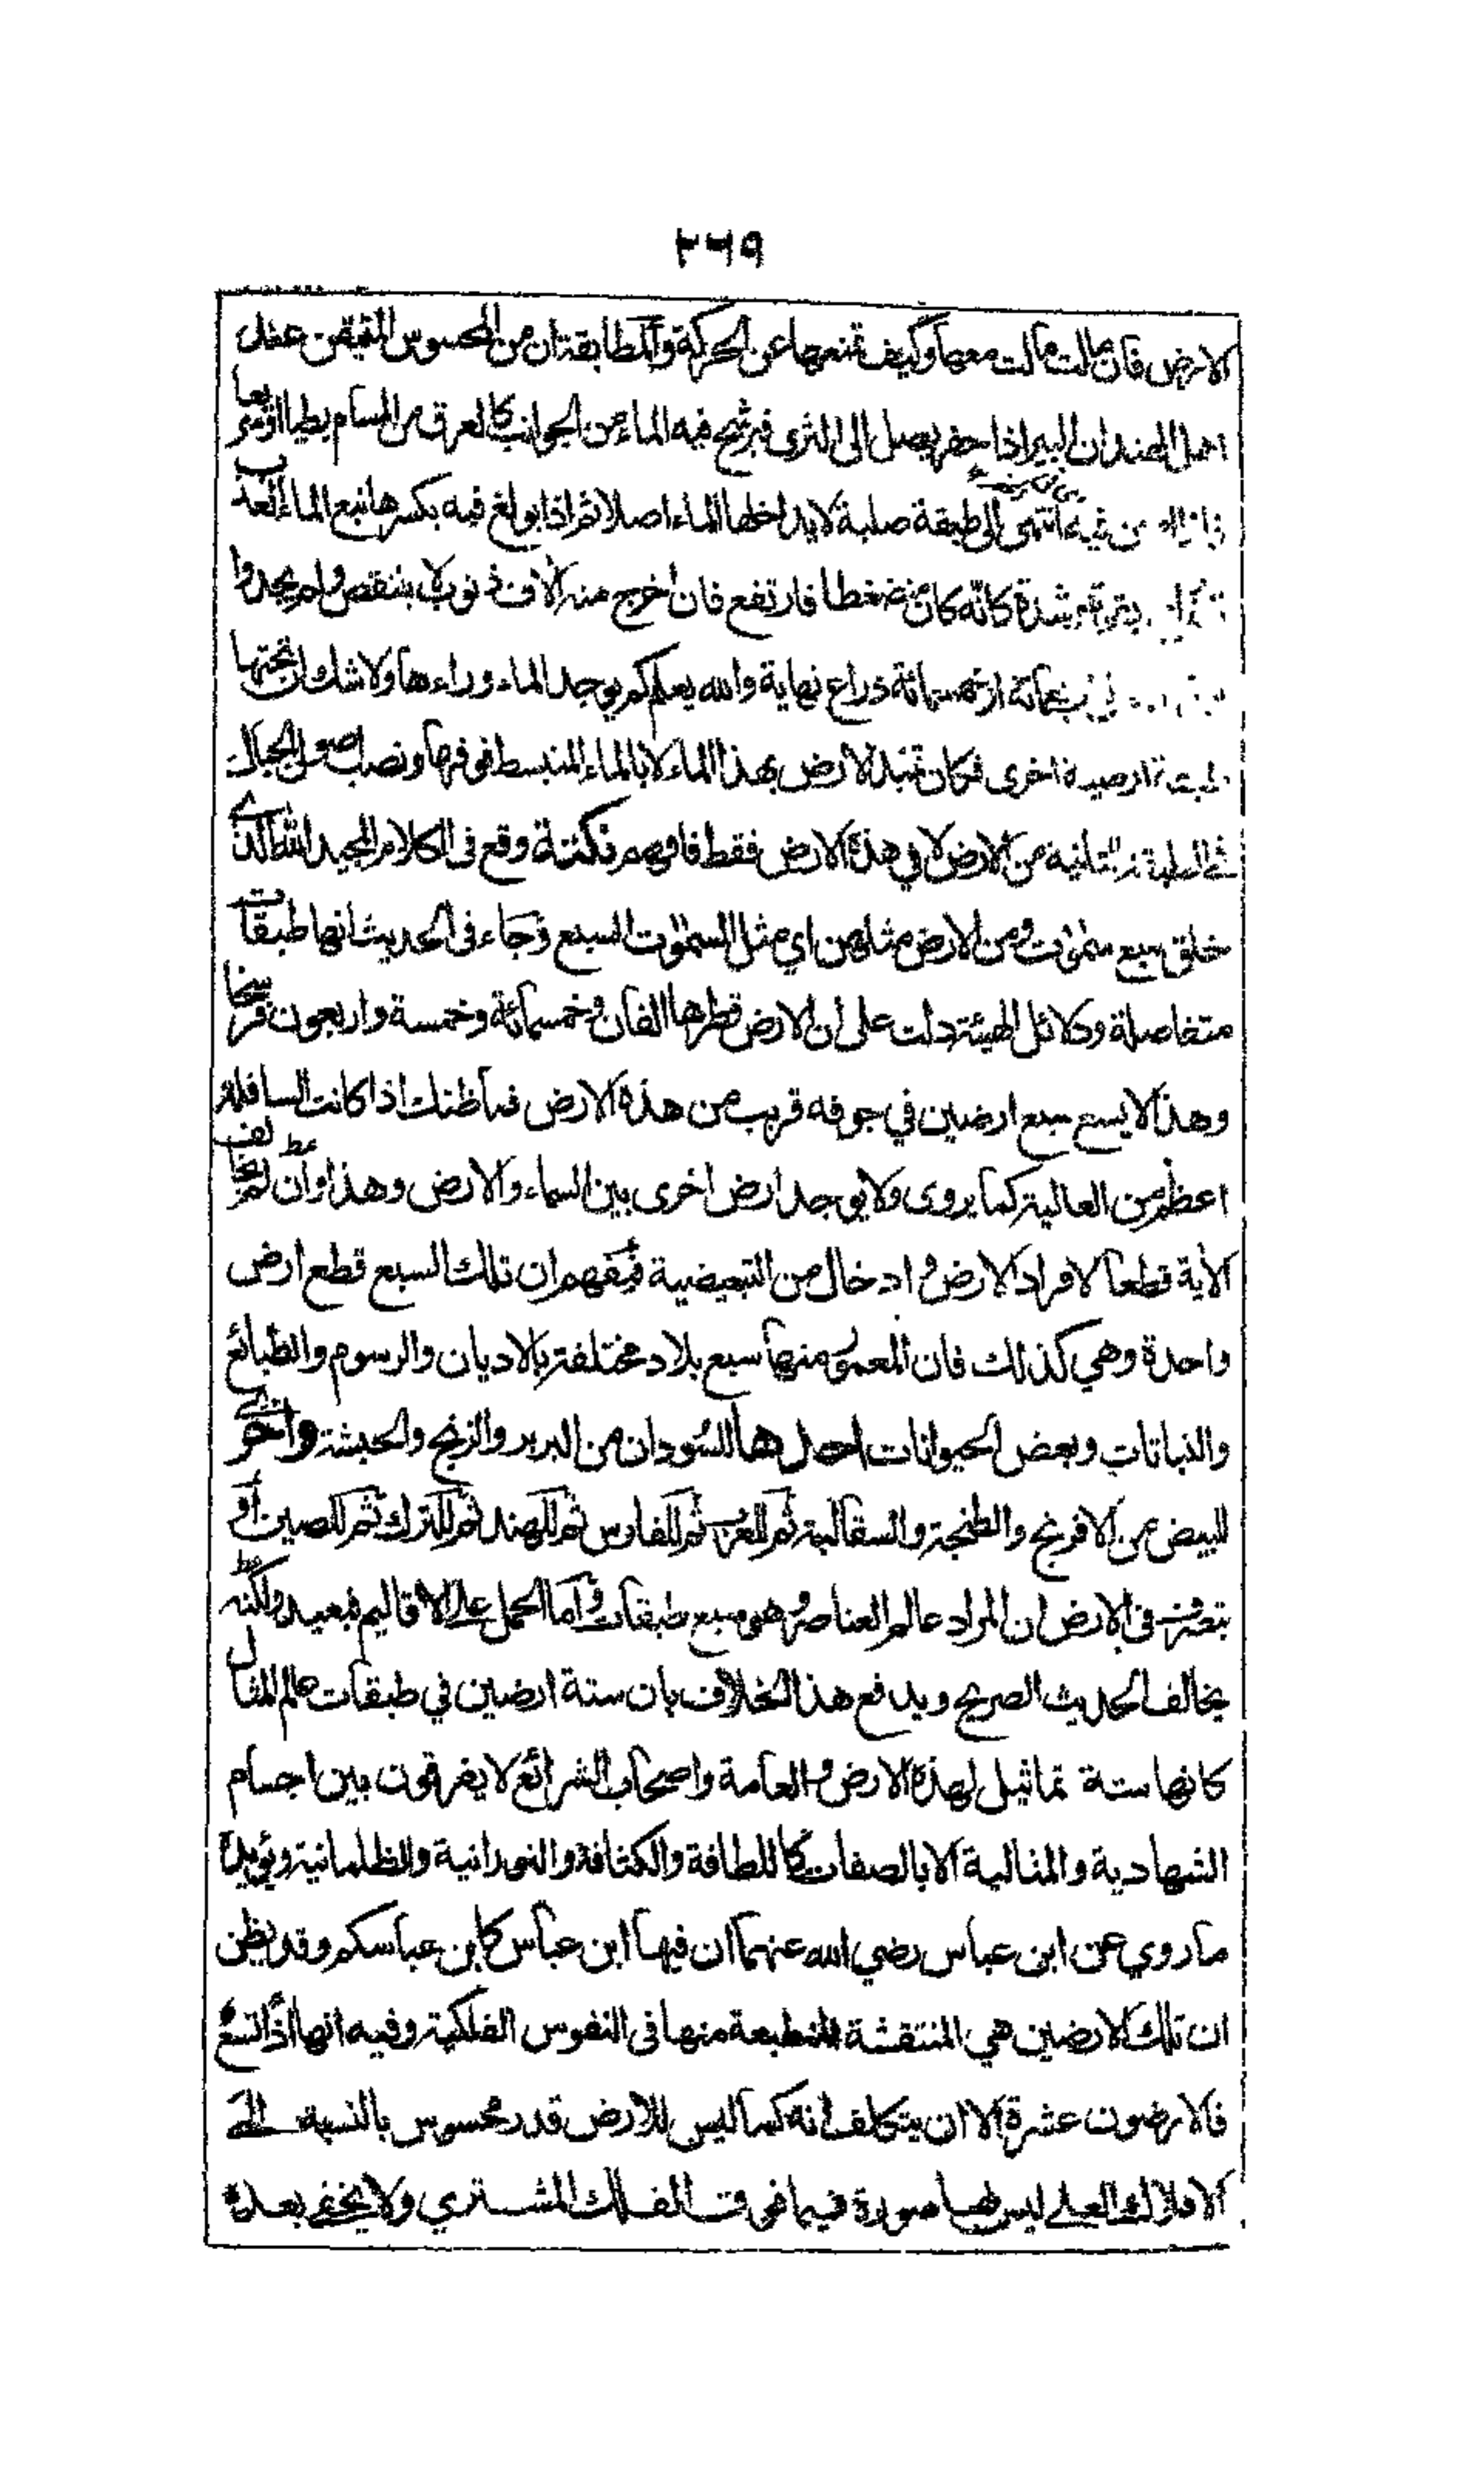 ٢٦٩
الارض فان مالت مالت معها وكيف تمنعها عن الحركة والمطابقتان من المحسوس المتيقن عند
اهل الهند ان البير اذا حفر يصل الى الثرى فيرشح فيه الماء من الجوانب كالعرق من المسام بطيا او سريعا
من انتهى الى طبقة صلبة لا يداخلها الماء اصلا ثم اذا بولغ فيه بكسرها نبع الماء العذب
بشدة كانه كان منضغطا فارتفع فان اخرج منه آلاف ذنوب لا ينقص ولم يجدوا
خمسمائة ذراع نهاية والله يعلم كم يوجد الماء وراءها ولا شك ان تحتها
طبقة ارضية اخرى فكان تميد الارض بهذا الماء لا بالماء المنبسط فوقها ونصب اصول الجبال
في الطبقة التانية من الارض لا في هذه الارض فقط فافهم نكتة وقع فى الكلام المجيد الله الذى
خلق سبع سموت ومن الارض مثلهن اي مثل السموت السبع وجاء فى الحديث انها طبقات
متفاصلة ودلائل الهيئة دلت على ان الارض قطرها الفان وخمسمائة وخمسة واربعون فرسخا
وهذا لا يسع سبع ارضين في جوفه قريب من هذه الارض فما ظنك اذا كانت السافلة
اعظم من العالية كما يروى ولا يوجد ارض اخرى بين السماء والارض وهذا وان لم يخالف
الآية قطعا لافراد الارض وادخال من التبعيضية فيفهم ان تلك السبع قطع ارض
واحدة وهي كذلك فان المعمور منها سبع بلاد مختلفة بالاديان والرسوم والطبائع
والنباتات وبعض الحيوانات احدها للسودان من البربر والزنج والحبشة واخرى
للبيض من الافرنج والطنجة والسقالبة ثم للعرب ثم للفارس ثم للهند ثم للترك ثم للصين او
فى الارض ان المراد عالم العناصر وهو سبع طبقات واما الحمل على الاقاليم فبعيد ولكنه
يخالف الحديث الصريح ويدفع هذا الخلاف بان ستة ارضين في طبقات عالم المثال
كانها ستة تماثيل لهذه الارض والعامة واصحاب الشرائع لا يفرقون بين اجسام
الشهادية والمثالية الا بالصفات كاللطافة والكثافة والنورانية والظلمانية ويؤيده
ما روي عن ابن عباس رضي الله عنهما ان فيها ابن عباس كابن عباسكم وقد يظن
ان تلك الارضين هي المنتقشة المنطبعة منها فى النفوس الفلكية وفيه انها اذا تسع
فالارضون عشرة الا ان يتكلف انه كما ليس للارض قدر محسوس بالنسبة الى
الافلاك العلى ليس لها صورة فيما فوق الفلك المشتري ولا يخفى بعده